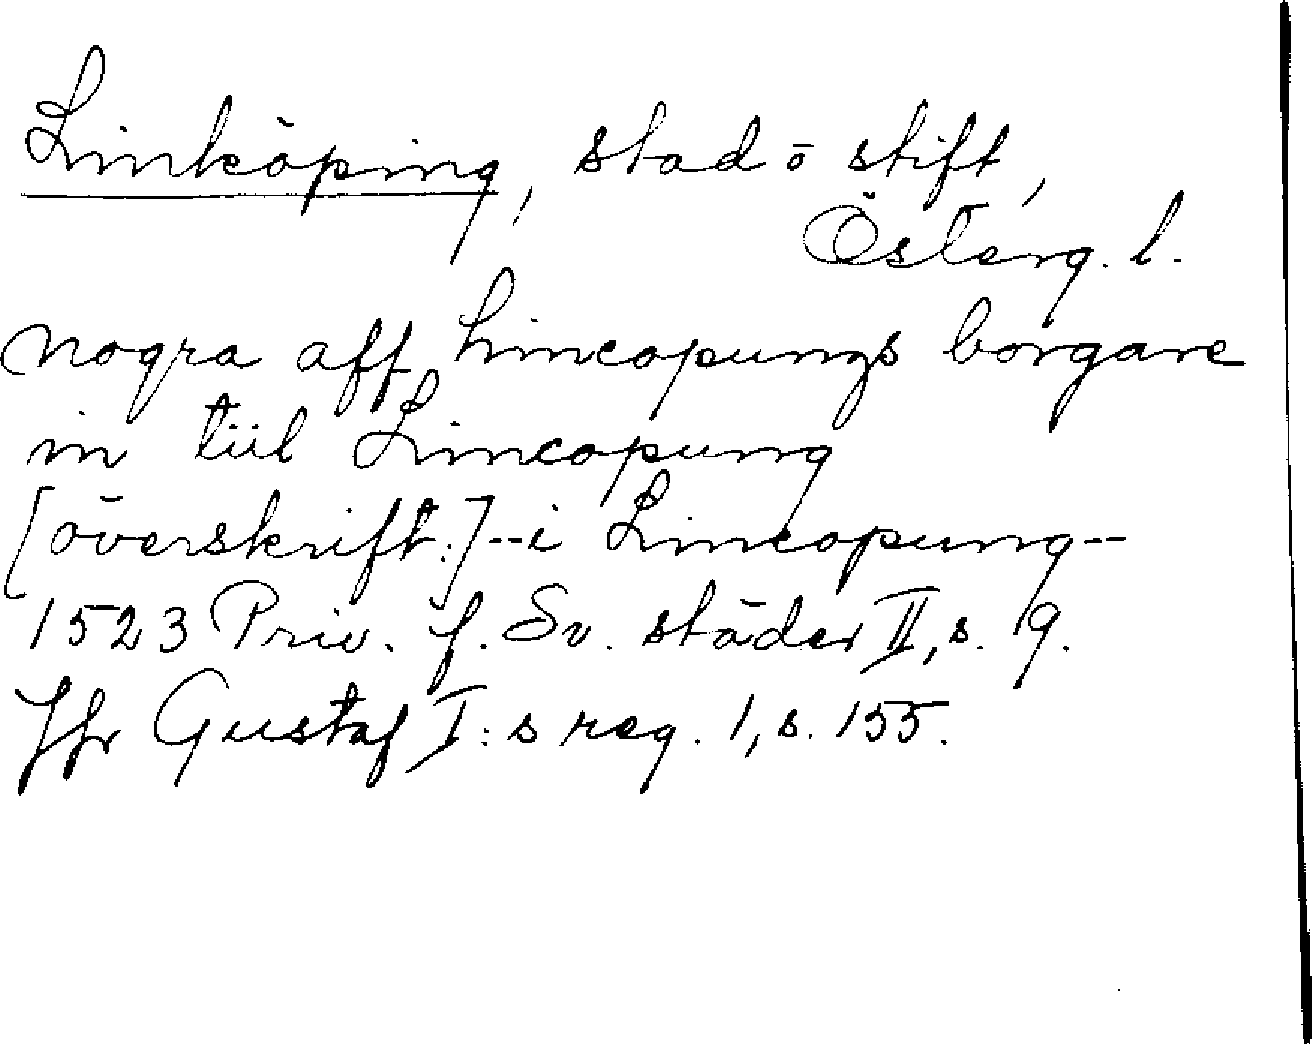 Linköping, stad o stift,
Österg. l.
nogra aff Lincopungs borgare
in tiil Lincopung
[överskrift:] -- i Lincopung --
1523 Priv. f. Sv. städer II, s. 9.
Jfr Gustaf I:s reg. 1, s. 155.